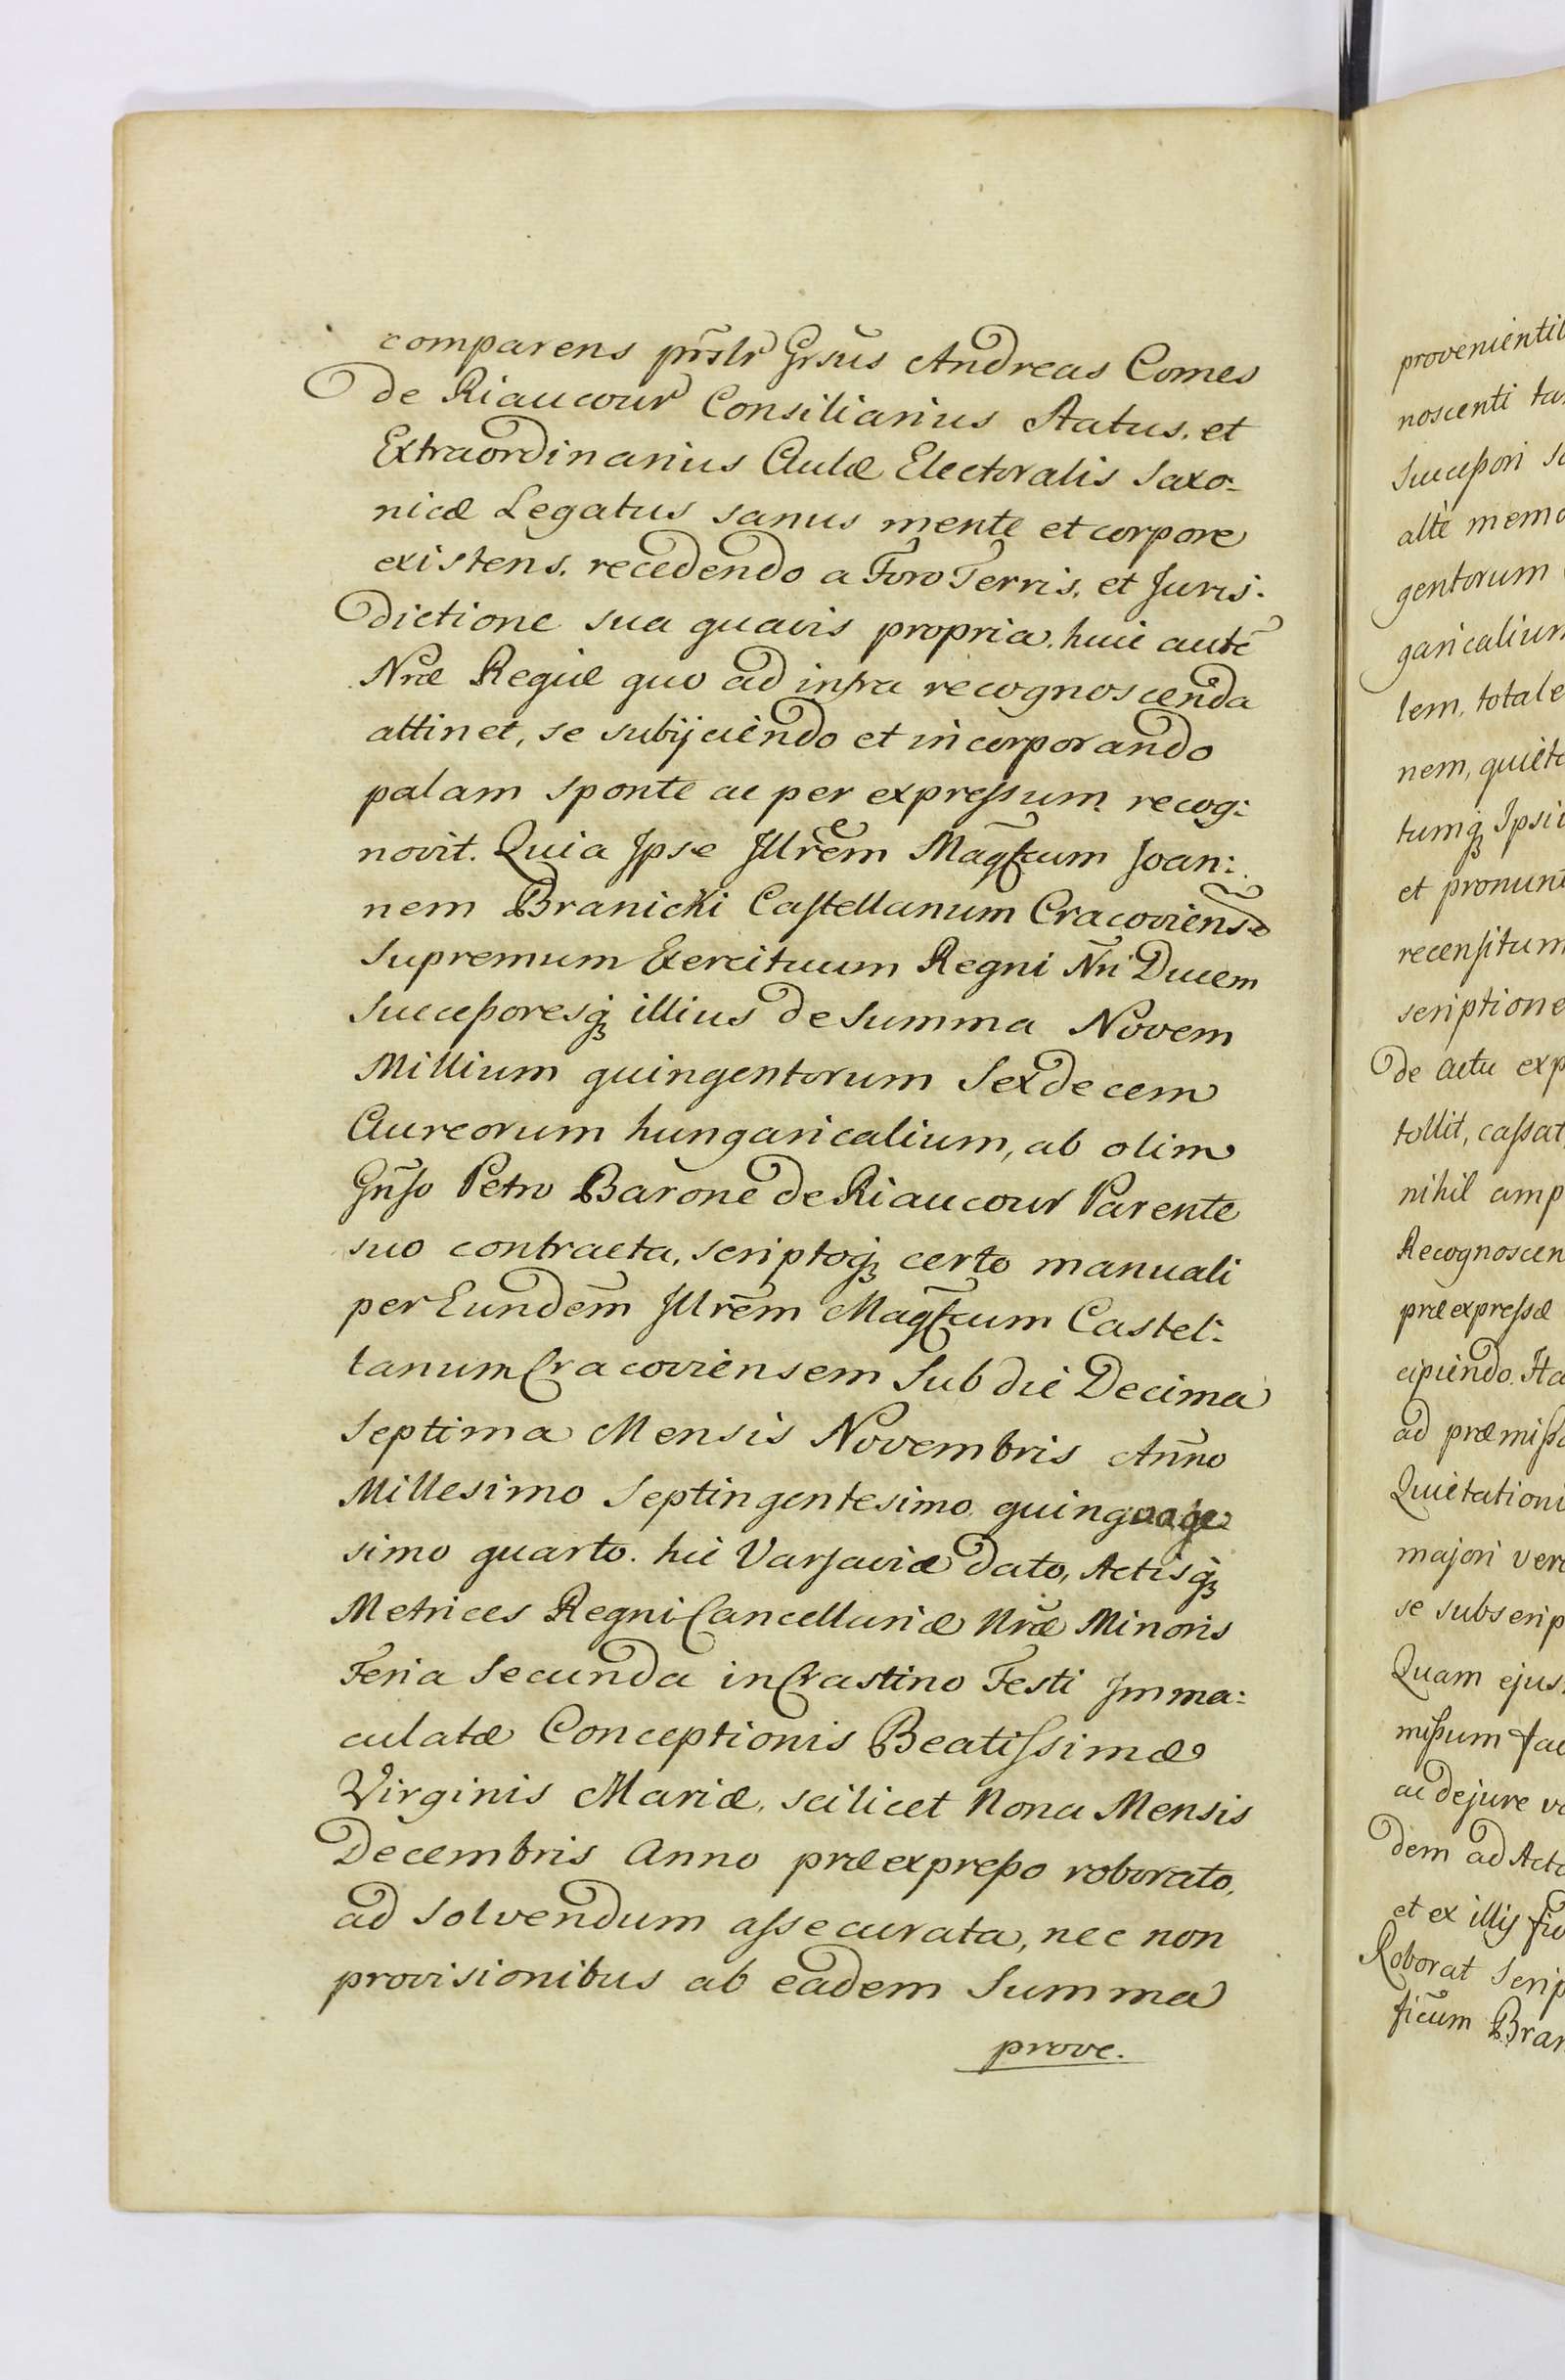 comparens prnsltr Grsus Andreas Comes
de Riaucour Consiliarius Status, et
Extraordinarius Aulæ Electoralis Saxo-
nicæ Legatus sanus mente et corpore
existens, recedendo a Foro Terris, et Juris:
dictione sua quavis propria, huic autē
Nræ Regiæ quo ad infra recognoscenda
attinet, se subijciendo et incorporando
palam sponte ac per expressum recog:
novit. Quia Ipse Illrem Magfcum Joan:
nem Branicki Castellanum Cracoviense
Supremum Exercituum Regni Nri Ducem
Successoresq; illius de Summa Novem
Millium quingentorum Sexdecem
Aureorum hungaricalium, ab olim
Gnso Petro Barone de Riaucour Parente
suo contracta, scriptoq; certo manuali
per Eundem Illrem Magfcum Castel:
lanum Cracoviensem Sub die Decima
Septima Mensis Novembris Anno
Millesimo Septingentesimo quinquage
simo quarto. hic Varsaviæ dato, Actisq;
Metrices Regni Cancellariæ Nræ Minoris
Feria Secunda in Crastino Festi Imma:
culatæ Conceptionis Beatissimæ
Virginis Mariæ, scilicet Nona Mensis
Decembris Anno præexpresso roborato,
ad Solvendum assecurata, nec non
provisionibus ab eadem Summa
prove.
provenienti
noscenti
Successori
alte memo
gentorum
garicalium
lem, totale
nem, quiet
tumq; Ipsi
et pronun
recensitum
scriptione
de actu exp
tollit, cassat,
nihil amp
Recognoscen
præexpressæ
cipiendo. Ita
ad præmissa
Quietationi
majori vero
se subscrip
Quam ejus
missum fac
ac de jure
dem ad Acta
et ex illis
Roborat Scrip
ficum Bran